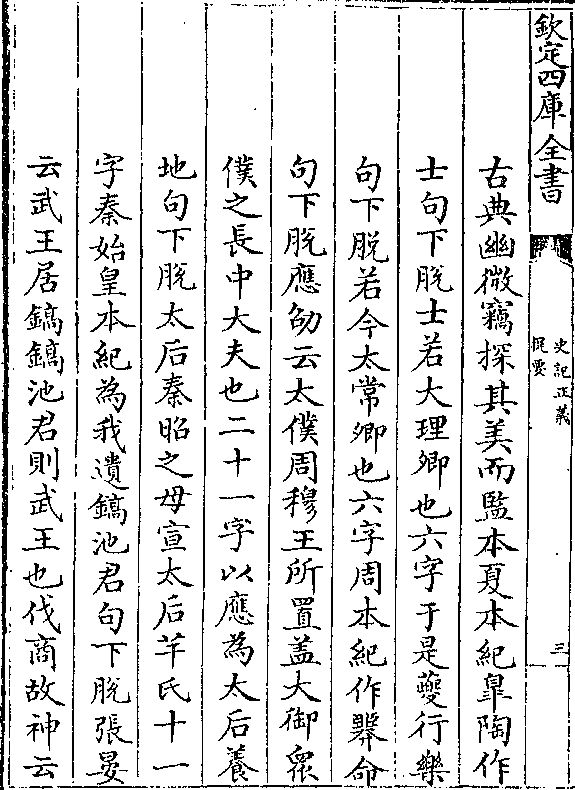 欽定四庫全書
史記正義
提要
三
古典幽微竊探其美而監本夏本紀臯陶作
士句下脱士若大理卿也六字于是夔行樂
句下脱若今太常卿也六字周本紀作臩命
句下脱應劭云太僕周穆王所置盖大御衆
僕之長中大夫也二十一字以應為太后養
地句下脱太后秦昭之母宣太后芊氏十一
字秦始皇本紀為我遺鎬池君句下脱張晏
云武王居鎬鎬池君則武王也伐商故神云